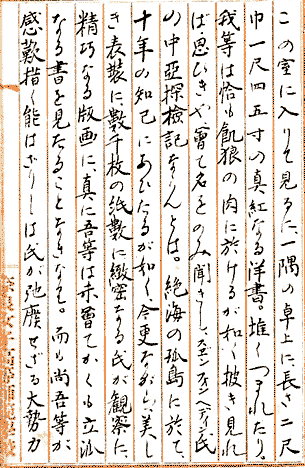 この室に入りて見るに、一隅の卓上に長さ二尺
巾一尺四五寸の真紅なる洋書。堆くつまれたり。
我等は恰も飢狼の肉に於けるが如く披き見れ
ば思ひきや曾て名をのみ聞きし、スエン、ヘディン氏
の中亜探検記ならんとは。絶海の孤島に於て、
十年の知己にあひたるが如く今更ながら、美し
き表装に数千枚の紙数に緻密なる氏が観察に、
精巧なる版画に真に吾等は未曾てかくも立派
なる書を見たることなきなり。而も尚吾等が
感歎措く能はざりしは氏が弛廃せざる大勢力